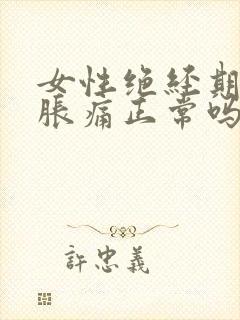 女性绝经期
胀痛正常吗
許忠義